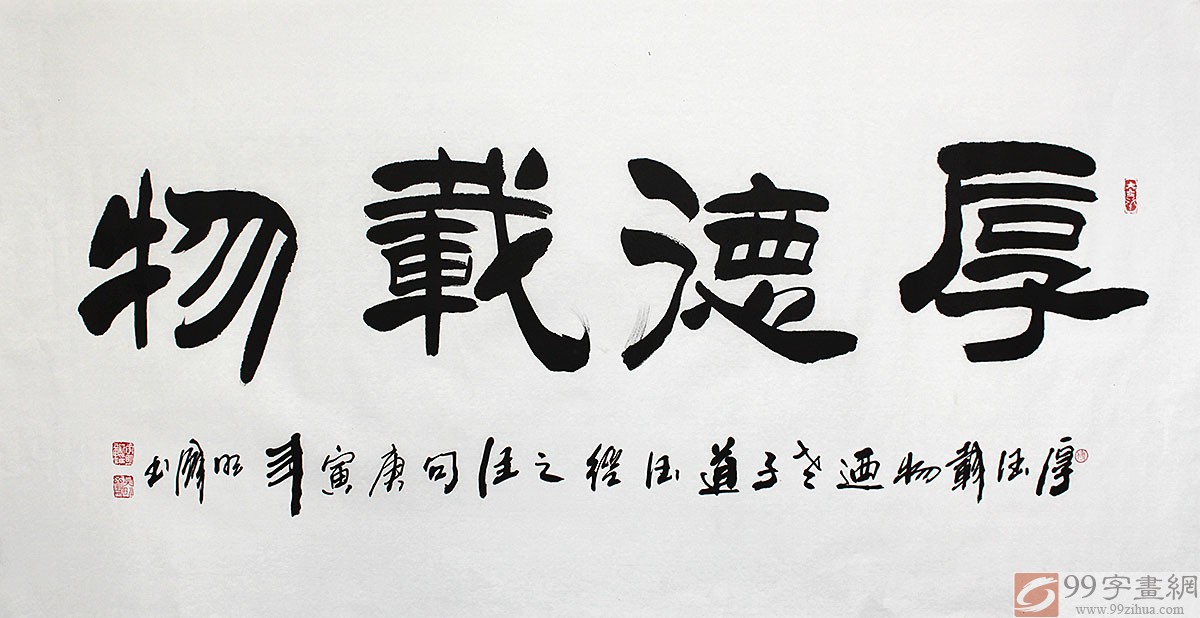 厚德載物
厚德載物迺老子道德經之佳句庚寅年书
99字畫網
www.99zihua.com